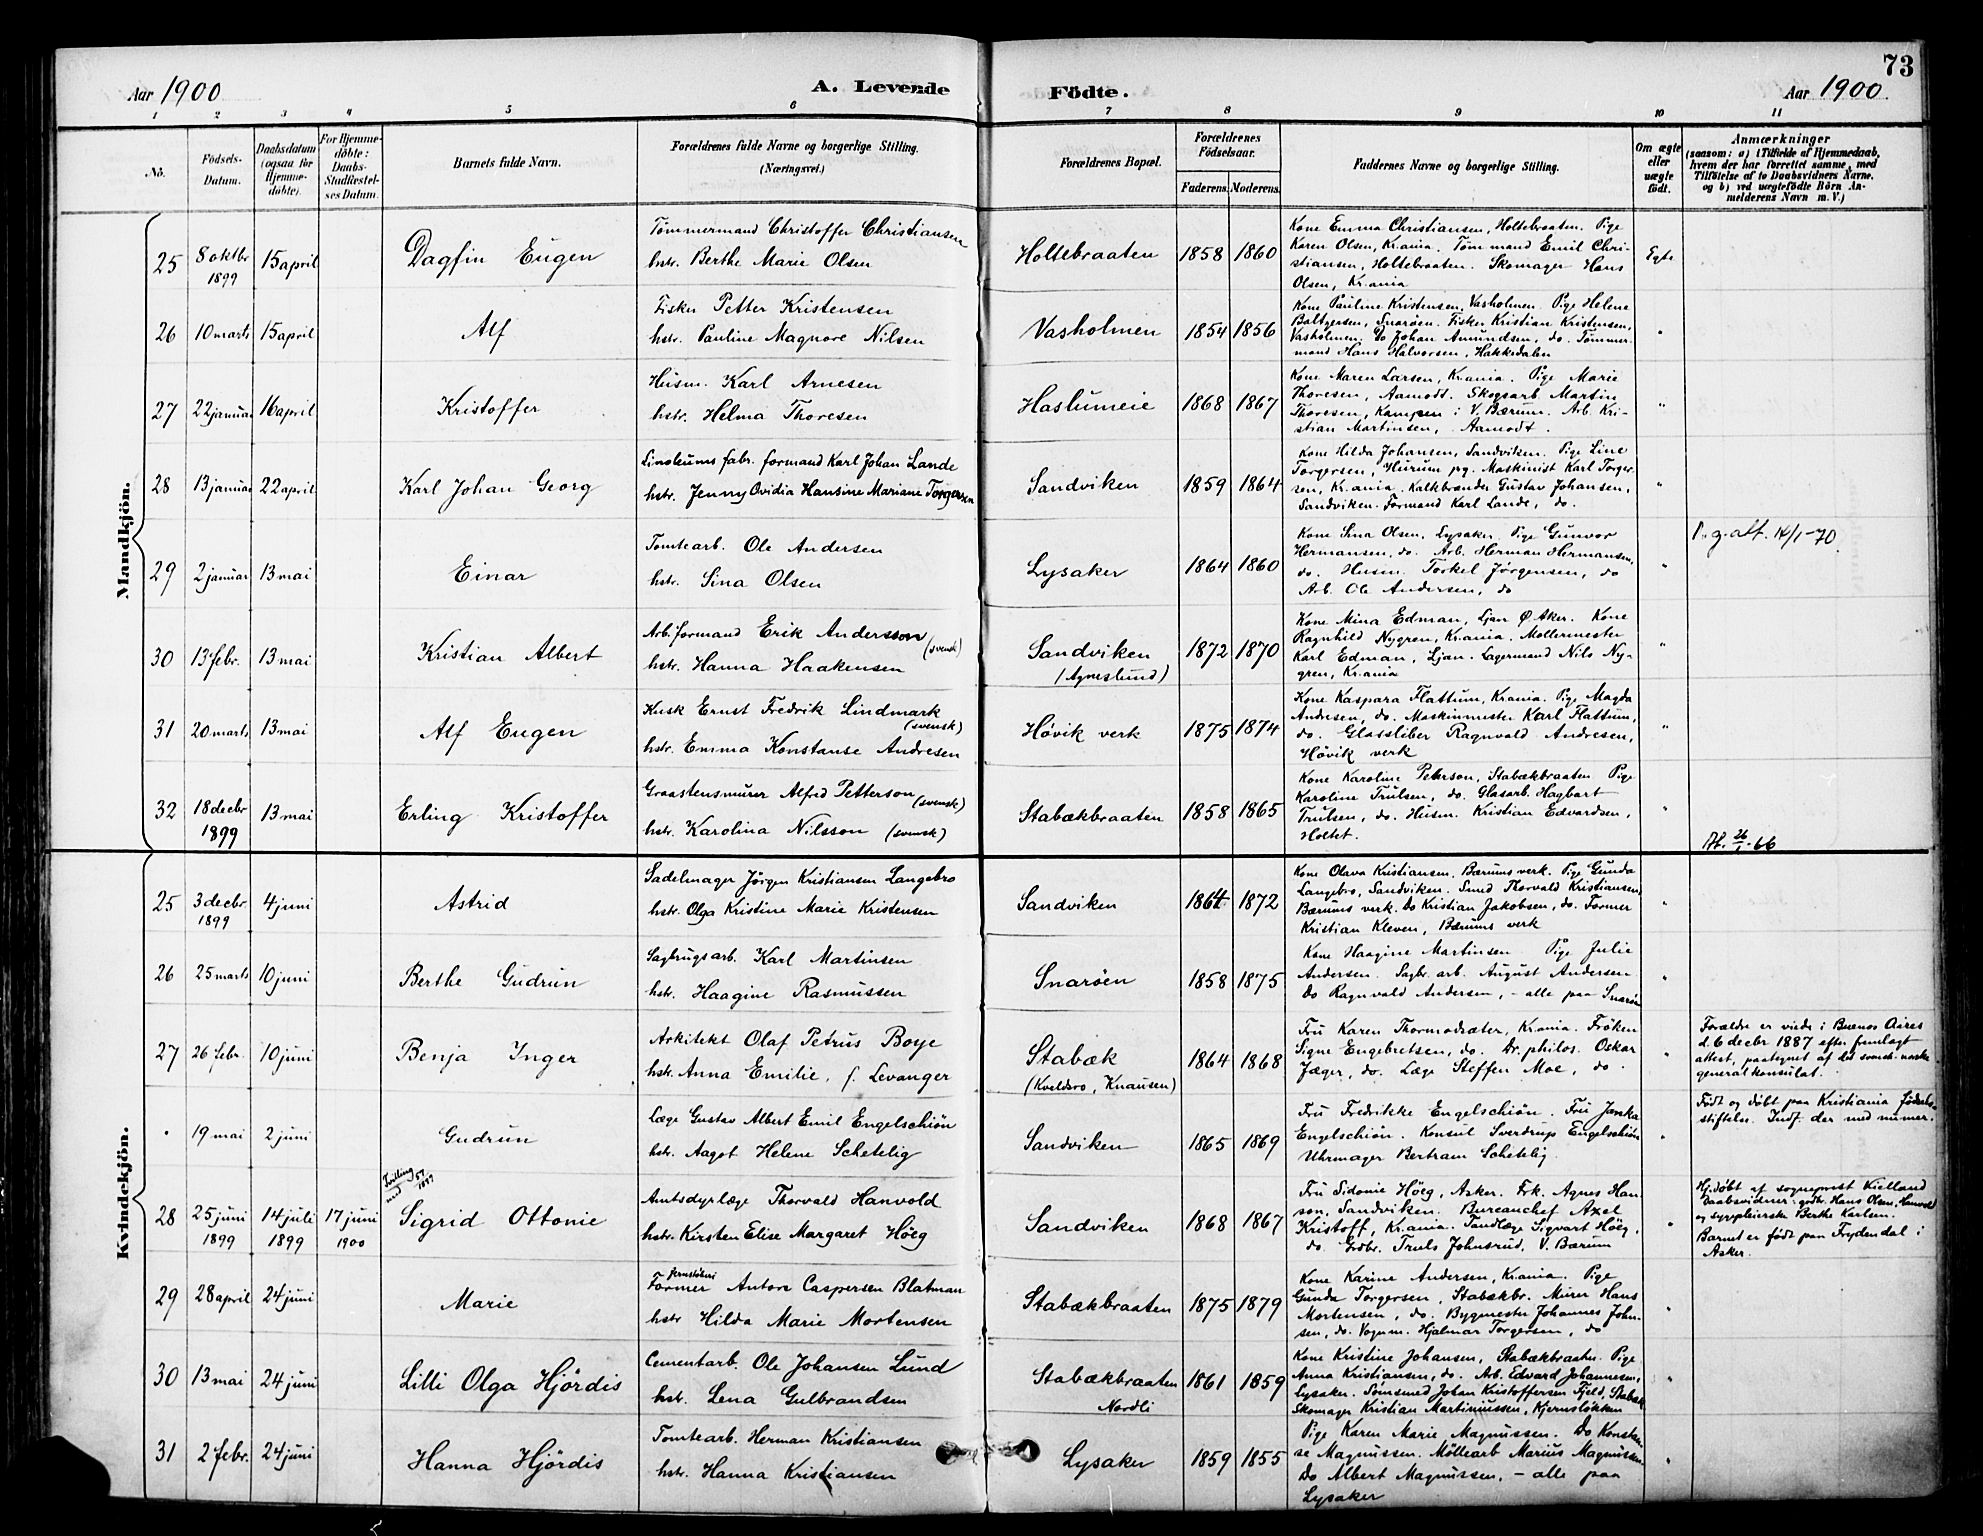 73
Aar 1900
A. Levende
Födte.
Aar 1900
1 2 3 4 5 6 7 8 9 10 11
No.
Födsels-Datum.
Daabsdatum (ogsaa for Hjemmedöbte).
For Hjemmedöbte: Daabs-Stadfæstelses Datum.
Barnets fulde Navn.
Forældrenes fulde Navne og borgerlige Stilling.
(Næringsvei.)
Forældrenes Bopæl.
Forældrenes Födselsaar.
Faderens. Moderens.
Faddernes Navne og borgerlige Stilling.
Om ægte eller uægte födt.
Anmærkninger
(saasom: a) i Tilfælde af Hjemmedaab, hvem der har forrettet samme, med Tilföielse af to Daabsvidners Navne, og b) ved uægtefödte Börn Anmelderens Navn m. V.)
Mandkjön.
25 8 oktbr 1899 15 april Dagfin Eugen
Tømmermand Christoffer Christiansen
hstr. Berthe Marie Olsen
Holtebraaten 1858 1860
Kone Emma Christiansen, Holtebraaten. Pige
Karen Olsen, Kr.ania. Tøm mand Emil Chri-
stiansen, Holtebraaten. Skomager Hans
Olsen, Kr.ania
Egte
26 10 marts 15 april Alf
Fisker Petter Kristensen
hstr. Pauline Magnore Nilsen
Vasholmen 1854 1856
Kone Pauline Kristensen, Vasholmen. Pige Helene
Baltzersen, Snarøen. Fisker Kristian Kristensen,
Vasholmen. Do Johan Amundsen, do. Tømmer-
mand Hans Halvorsen, Hakksdalen
"
27 22 januar 16 april Kristoffer
Husm. Karl Arnesen
hstr. Helma Thoresen
Haslumeie 1868 1867
Kone Maren Larsen, Kr.ania. Pige Marie
Thoresen, Aamodt. Skogsarb. Martin
Thoresen, Kampen i V. Bærum. Arb. Kri-
stian Martinsen, Aamodt.
"
28 13 januar 22 april Karl Johan Georg
Linoleums fabr. formand Karl Johan Lande
hstr. Jenny Ovidia Hansine Mariane Torgersen
Sandviken 1859 1864
Kone Hilda Johansen, Sandviken. Pige Line
Torgersen, Hurum pg. Maskinist Karl Torger-
sen, Kr.ania. Kalkbrænder Gustav Johansen,
Sandviken. Formand Karl Lande, do.
"
29 2 januar 13 mai Einar
Tomtearb. Ole Andersen
hstr. Sina Olsen
Lysaker 1864 1860
Kone Sina Olsen, Lysaker. Pige Gunvor
Hermansen, do. Arb. Herman Hermansen,
do. Husm. Torkel Jørgensen, do
Arb. Ole Andersen, do
"
P.g.alt. 14/1-70
30 13 febr. 13 mai Kristian Albert
Arb. formand Erik Andersson (svensk)
hstr. Hanna Haakensen
Sandviken
(Agneslund)
1872 1870
Kone Mina Edman, Ljan Ø. Aker. Kone
Ragnhild Nygren, Kr.ania. Møllermester
Karl Edman, Ljan. Lagermand Nils Ny-
gren, Kr.ania
"
31 20 marts 13 mai Alf Eugen
Kusk Ernst Fredrik Lindmark
(svensk)
hstr. Emma Konstanse Andresen
Høvik verk 1875 1874
Kone Kaspara Flattum, Kr.ania. Pige Magda
Andresen, do. Maskinmester Karl Flattum,
do. Glassliber Ragnvald Andresen,
Høvik verk
"
32 18 decbr 1899 13 mai Erling Kristoffer
Graastensmurer Alfred Petterson (svensk)
hstr. Karolina Nilsson (svensk)
Stabækbraaten 1858 1865
Kone Karoline Peterson, Stabækbraaten. Pige
Karoline Trulsen, do. Glasarb. Hagbart
Trulsen, do. Husm. Kristian Edvardsen,
Holtet.
"
Kvindekjön.
25 3 decbr 1899 4 juni Astrid
Sadelmager Jörgen Kristiansen Langebro
hstr. Olga Kristine Marie Kristensen
Sandviken 1864 1872
Kone Olava Kristiansen, Bærums verk. Pige Gunda
Langebro, Sandviken. Smed Thorvald Kristiansen,
Bærums verk. Do Kristian Jakobsen, do. Former
Kristian Kleven, Bærums verk
"
26 25 marts 10 juni Berthe Gudrun
Sagbrugsarb. Karl Martinsen
hstr. Haagine Rasmussen
Snarøen 1858 1875
Kone Haagine Martinsen. Pige Julie
Andersen. Sagbr. arb. August Andersen
Do Ragnvald Andersen, - alle paa Snarøen
"
27 26 febr. 10 juni Benja Inger
Arkitekt Olaf Petrus Boye
hstr. Anna Emilie, f. Levanger
Stabæk
(Kveldsro, Knausen)
1864 1868
Fru Karen Thormodsæter, Kr.ania. Frøken
Signe Engebretsen, do. Dr. philos. Oskar
Jæger, do. Læge Steffen Moe, do
"
Forældre er viede i Buenos Aires
d. 6 decbr 1887 efter fremlagt
attest, paategnet af det svensk-norske
generalkonsulat.
19 mai 2 juni Gudrun
Læge Gustav Albert Emil Engelschiön
hstr. Aagot Helene Schetelig
Sandviken 1865 1869
Fru Fredrikke Engelschiön. Fru Janka
Engelschiön. Konsul Sverdrup Engelschiön
Uhrmager Bertram Schetelig
"
Født og døbt paa Kristiania fødsels-
stiftelse. Indf. der med nummer.
28 25 juni 1899 14 juli 1899 17 juni 1900
Tvilling med
Sigrid Ottonie
Amtsdyrlæge Thorvald Hanvold
hstr. Kirsten Elise Margaret Höeg
Sandviken 1868 1867
Fru Sidonie Höeg, Asker. Frk. Agnes Han-
son, Sandviken. Bureauchef Axel
Kristoff, Kr.ania. Tandlæge Sigvart Höeg,
do. Grdbr. Truls Johnsrud, V. Bærum
"
Hj.døbt af sogneprest Kielland
Daabsvidner: godtr. Hans Olsen, Hanvold
og sygepleierske Berthe Karlsen.
Barnet er født paa Frydendal i
Asker.
29 28 april 24 juni Marie
Former Anton Caspersen Blatman
hstr Hilda Marie Mortensen
Stabækbraaten 1875 1879
Kone Karine Andersen, Kr.ania. Pige
Gunda Torgersen, Stabækbr. Murer Hans
Mortensen, do. Bygmester Johannes John-
sen, do. Vognm. Hjalmar Torgersen, do
"
30 13 mai 24 juni Lilli Olga Hjördis
Cementarb. Ole Johansen Lund
hstr. Lena Gulbrandsen
Stabækbraaten
Nordli
1861 1859
Kone Kristine Johansen, Stabækbraaten. Pige
Anna Kristiansen, do. Arb. Edvard Johannesen,
Lysaker. Sømsmed Johan Kristoffersen Fjeld, Stabæk
Skomager Kristian Martiniussen, Kjernsløkken
"
31 2 febr. 24 juni Hanna Hjördis
Tomtearb. Herman Kristiansen
hstr. Hanna Kristiansen
Lysaker 1859 1855
Pige Karen Marie Magnussen. Do Konstan-
se Magnussen. Møllearb Marius Magnussen
Do Albert Magnussen, - alle paa
Lysaker
"